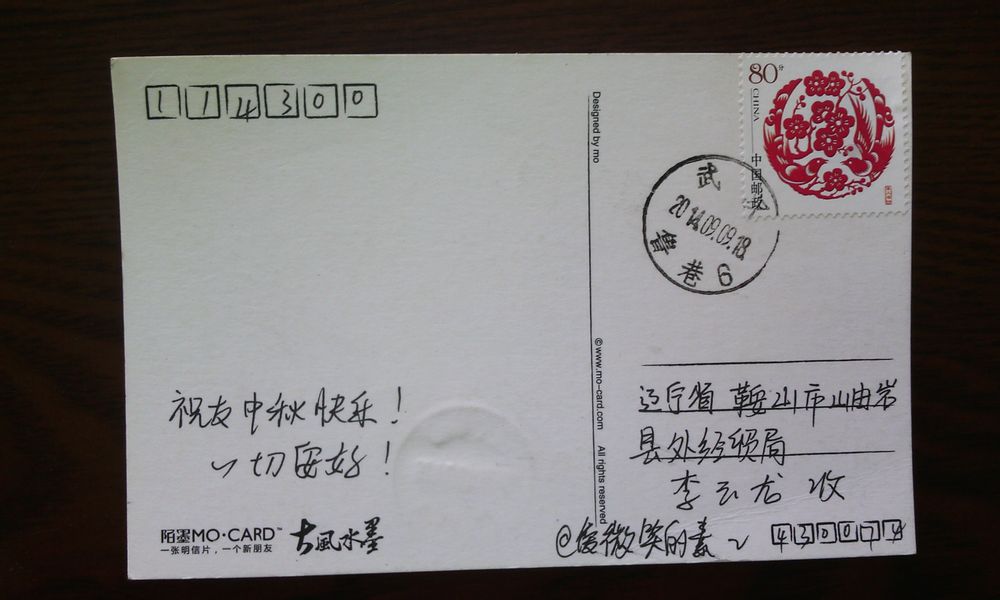 114300
80分
CHINA
中国邮政
Designed by mo
武汉
2014.09.09.18
鲁巷 6
©www.mo-card.com All rights reserved
祝友中秋快乐!
一切安好!
辽宁省鞍山市岫岩
县外经贸局
李云龙 收
陌墨MO·CARD™
一张明信片,一个新朋友
古風水墨
@爱微笑的素
430074